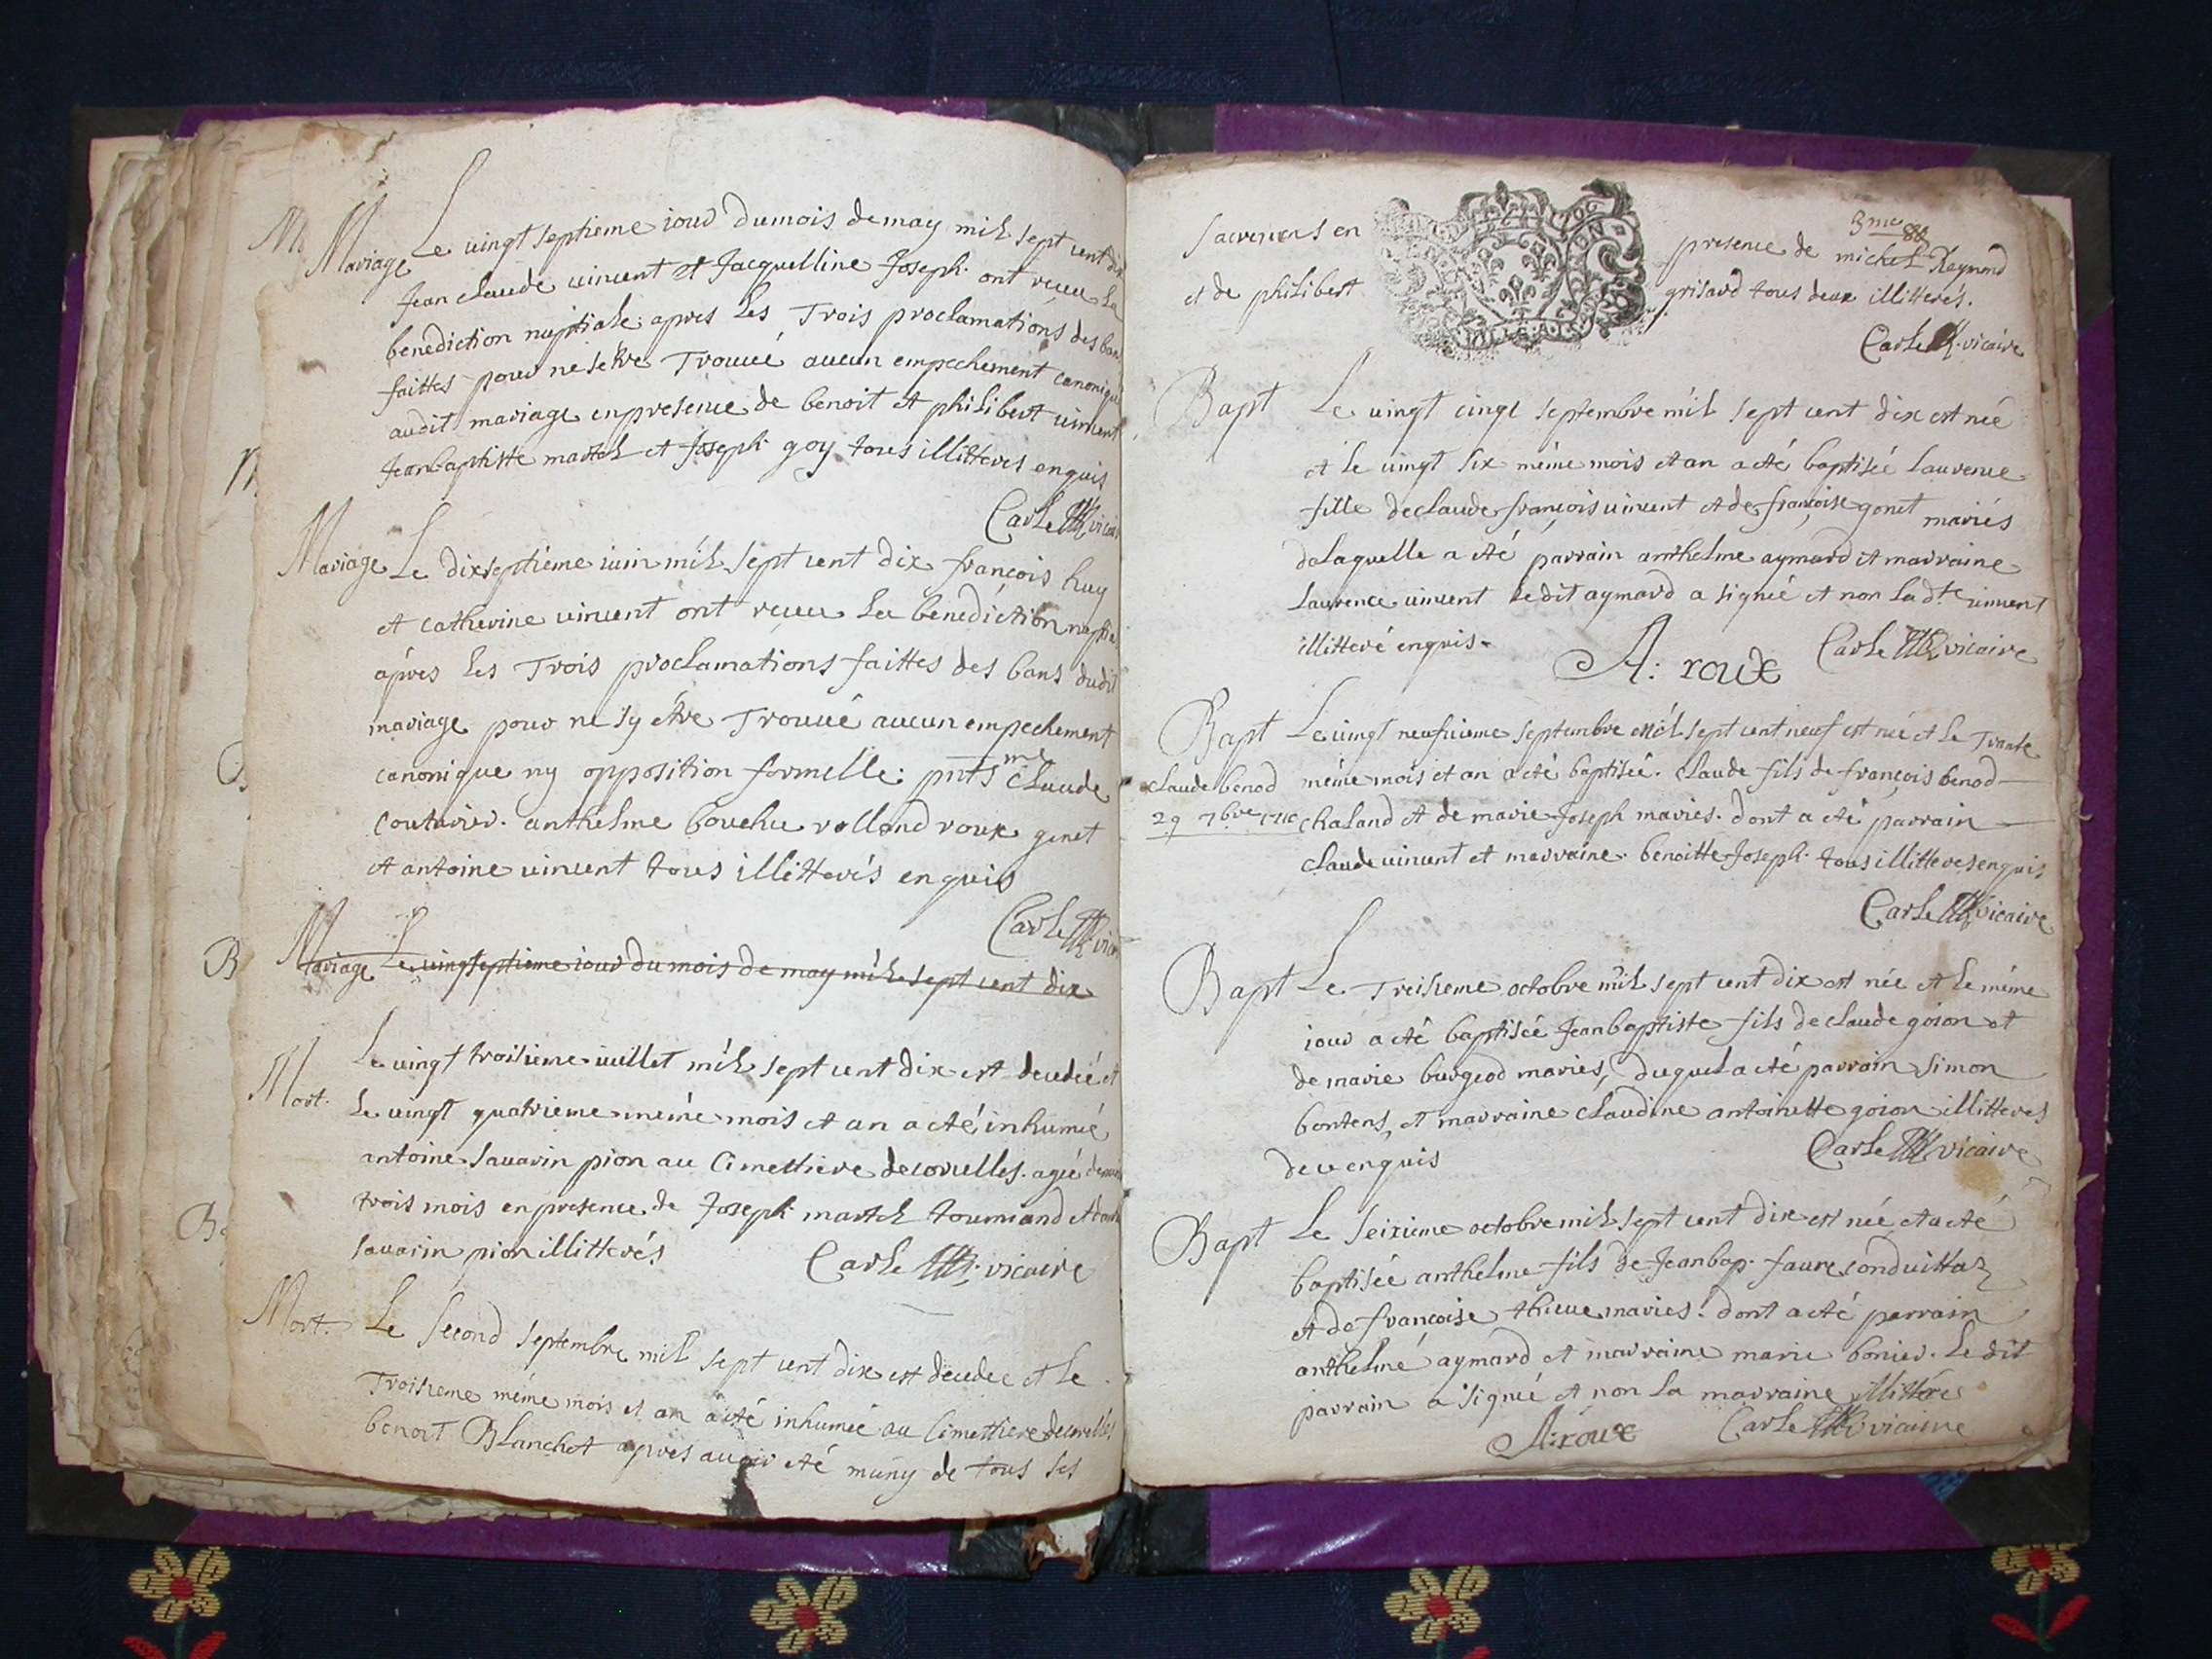 Mariage Le vingt septieme iour du mois de may mil sept cent dix
Jean claude vincent et Jacquelline Joseph ont receu la
benediction nuptiale apres les Trois proclamations des bans
faittes pour ne setre Trouué aucun empechement canonique
audit mariage en presence de benoit et philibert vincent
Jean baptiste martel et Joseph goy tous illitterés enquis
Carle vicaire
Mariage Le dixseptiéme iuin mil sept cent dix françois huy
et catherine vincent ont receu la benediction
aprés les Trois proclamations faittes des bans dudit
mariage pour ne s'y étre Trouué aucun empechement
canonique ny opposition formelle: pnts me claude
couturier. anthelme bouchu rolland roux genet
et antoine vincent tous illitterés enquis
Carle vicaire
Mariage Le vingtseptieme iour du mois de may mil sept cent dix
Mort. Le vingt troisieme iuillet mil sept cent dix est decedée et
Le vingt quatrieme méme mois et an a eté inhumé
antoine sauarin pion au Cimettiere de coruelles. agée de
trois mois en presence de Joseph martel tourniand et
sauarin pion illitterés
Carle vicaire
Mort. Le second septembre mil sept cent dix est decedee et le
Troisieme méme mois et an a eté inhumée au Cimettiere
benoit Blanchet apres auoir eté muny de tous ses
3me
sacremens en presence de michel Reymond
et de philibert grisard tous deux illitterés.
Carle vicaire
Bapt Le vingt cinqe septembre mil sept cent dix est née
et le vingt six méme mois et an a eté baptisée laurence
fille de claude françois vincent et de françoise genet mariés
de laquelle a eté parrain anthelme aymard et marraine
Laurence vincent le dit aymard a signé et non lad.te vincent
illitteré enquis.
A: roux Carle vicaire
Bapt Le vingt neufuieme septembre mil sept cent neuf est née et le Trante
claude benod méme mois et an a eté baptisée. Claude fils de françois benod
29 7bre chaland et de marie Joseph mariés. dont a eté parrain
claude vincent et marraine benoitte Joseph. tous illitteres enquis
Carle vicaire
Bapt Le Treisieme octobre mil sept cent dix est née et le méme
iour a eté baptisée Jean baptiste fils de claude goion et
de marie burgeod mariés, duquel a eté parrain simon
bontens, et marraine claudine antoinette goion illitteres
de ce enquis
Carle vicaire
Bapt Le seizieme octobre mil sept cent dix est née et a eté
baptisée anthelme fils de Jean bap. faure conduittaz
et de françoise thieue mariés. dont a eté parrain
anthelme aymard et marraine marie bonier. Le dit
parrain a signé et non la marraine illittére
A: roux Carle vicaire